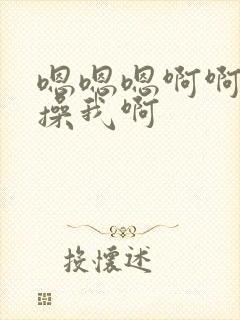 嗯嗯嗯啊啊
操我啊
投怀述